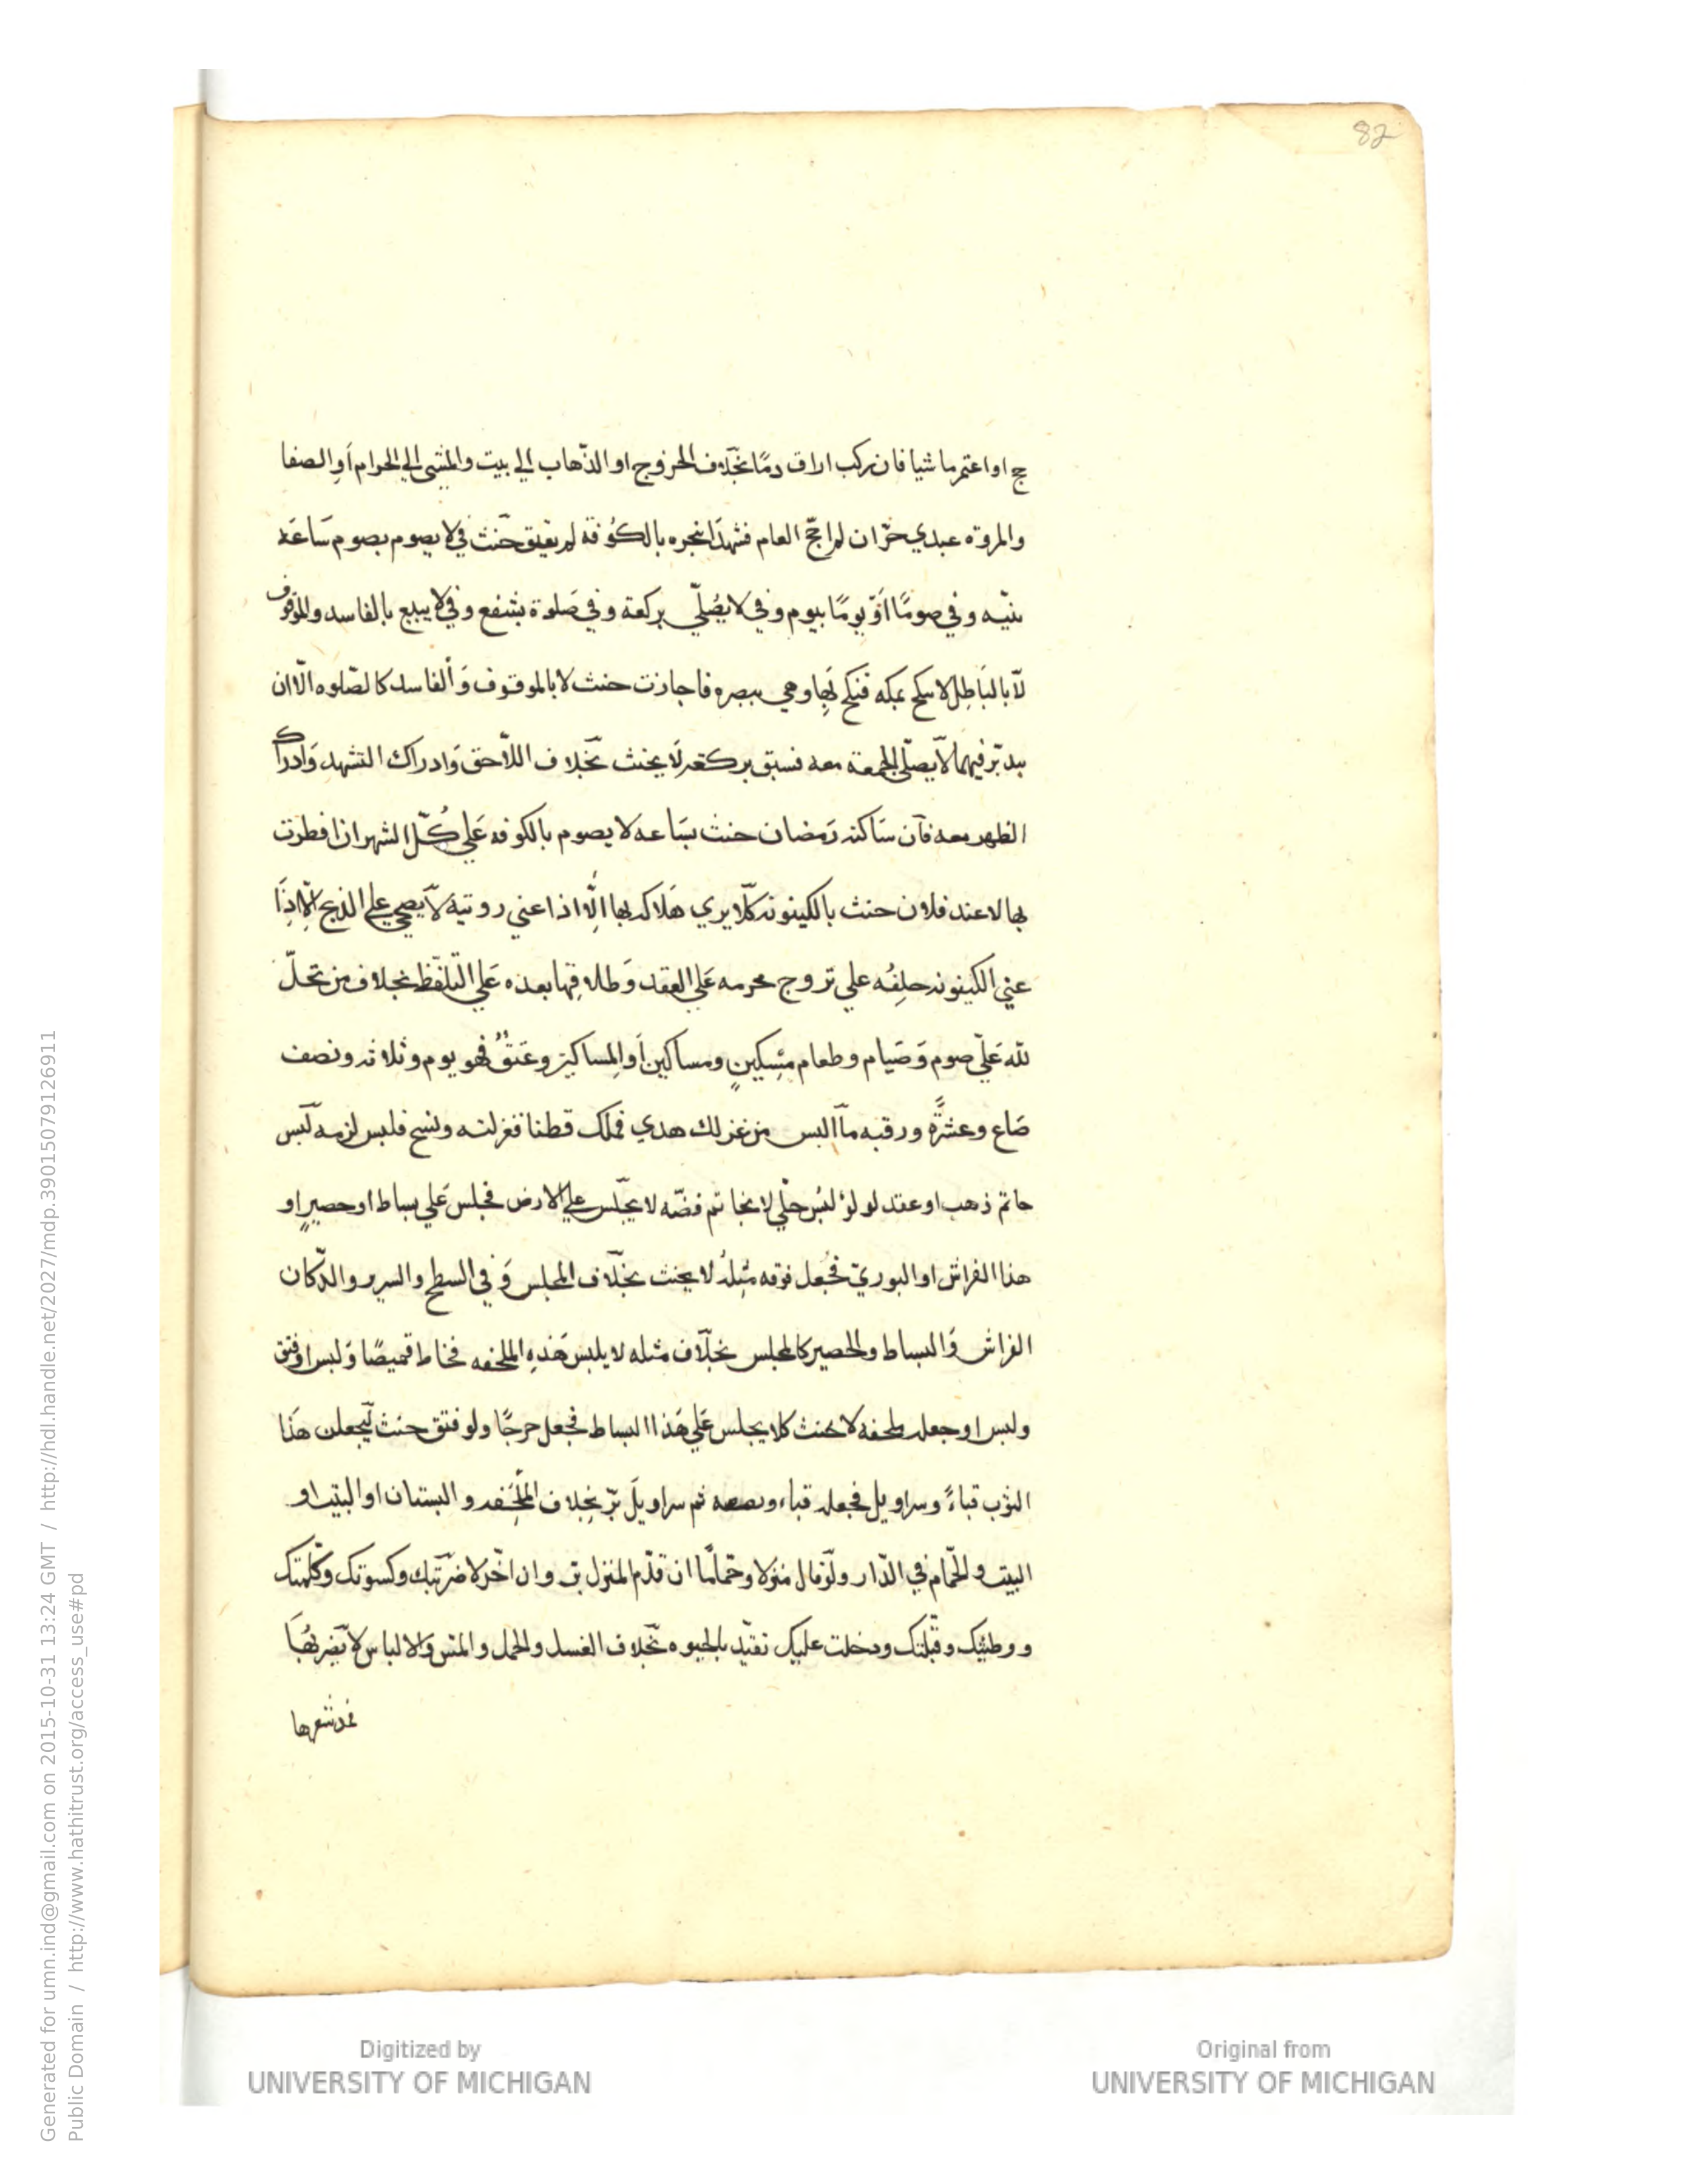 82
ج او اعتمر ماشيا فان ركب اراق دمًا بخلاف الخروج او الذهاب الي بيت والمشي الي الحرام أو الصفا
والمروة عبدي حرّ ان لم احجّ العام فشهدا بنحره بالكوفة لم يعتق حنث في لا يصوم بصوم ساعة
بنيّه وفي صومًا أو يومًا بيوم وفي لا يصلّي بركعة وفي صلوة بشفع وفي لا يبيع بالفاسد والموقوف
لا بالباطل لا ينكح بمكه فنكح بها وهي ببصره فاجازت حنث لا بالموقوف والفاسد كالصلوه الّا ان
فيهما لا يصلّي الجمعة معه فسبق بركعة لا يحنث بخلاف اللّاحق وادراك التشهد وادراك
الظهر معه فان ساكنه رمضان حنث بساعه لا يصوم بالكوفه علي كلّ الشهر ان افطرت
بها لا عند فلان حنث بالكينونة كلا يري هلاله بها الّا اذا عني رويته لا يضحي علي الذبح الّا اذا
عني الكينونه حلفه علي تزوج محرمه علي العقد وطلاقها بعده علي التلفّظ بخلاف من تحلّ
لله عليّ صوم وصيام وطعام مسكينٍ ومساكين أو المساكين وعتقٌ فهو يوم وثلاثه ونصف
صاع وعشرةً ورقبه ما البس من غزلك هدي فملك قطنا فغزلته ونسج فلبس لزمه لبس
خاتم ذهب او عقد لولؤ لبس حلّي لا بخاتم فضّه لا يجلس علي الارض فجلس علي بساط او حصيرٍ او
هذا الفراش او البوريّ فجعل فوقه مثله لا يحنث بخلاف المجلس وفي السطح والسرير والدّكان
الفراش والبساط والحصير كالمجلس بخلاف مثله لا يلبس هذه الملحفه فخاط قميصًا ولبس او فتق
ولبس او جعله ملحفه لا يحنث كلا يجلس علي هذا البساط فجعل خرجًا ولو فتق حنث ليجعلن هذا
الثوب قباءً وسراويل فجعله قباء ثم سراويل برّ بخلاف الملحفه و البستان او البيت او
البيت والحمّام في الدّار ولو قال منزلا وحمامًا ان قدّم المنزل برّ وان اخّر لا ضربتك وكسوتك وكلمتك
و وطئتك وقبّلتك ودخلت عليك تقيّد بالحيوه بخلاف الغسل والحمل والمسّ والالباس لا يضربها
فمدّ شعرها
Generated for umn.ind@gmail.com on 2015-10-31 13:24 GMT / http://hdl.handle.net/2027/mdp.39015079126911
Public Domain / http://www.hathitrust.org/access_use#pd
Digitized by
UNIVERSITY OF MICHIGAN
Original from
UNIVERSITY OF MICHIGAN